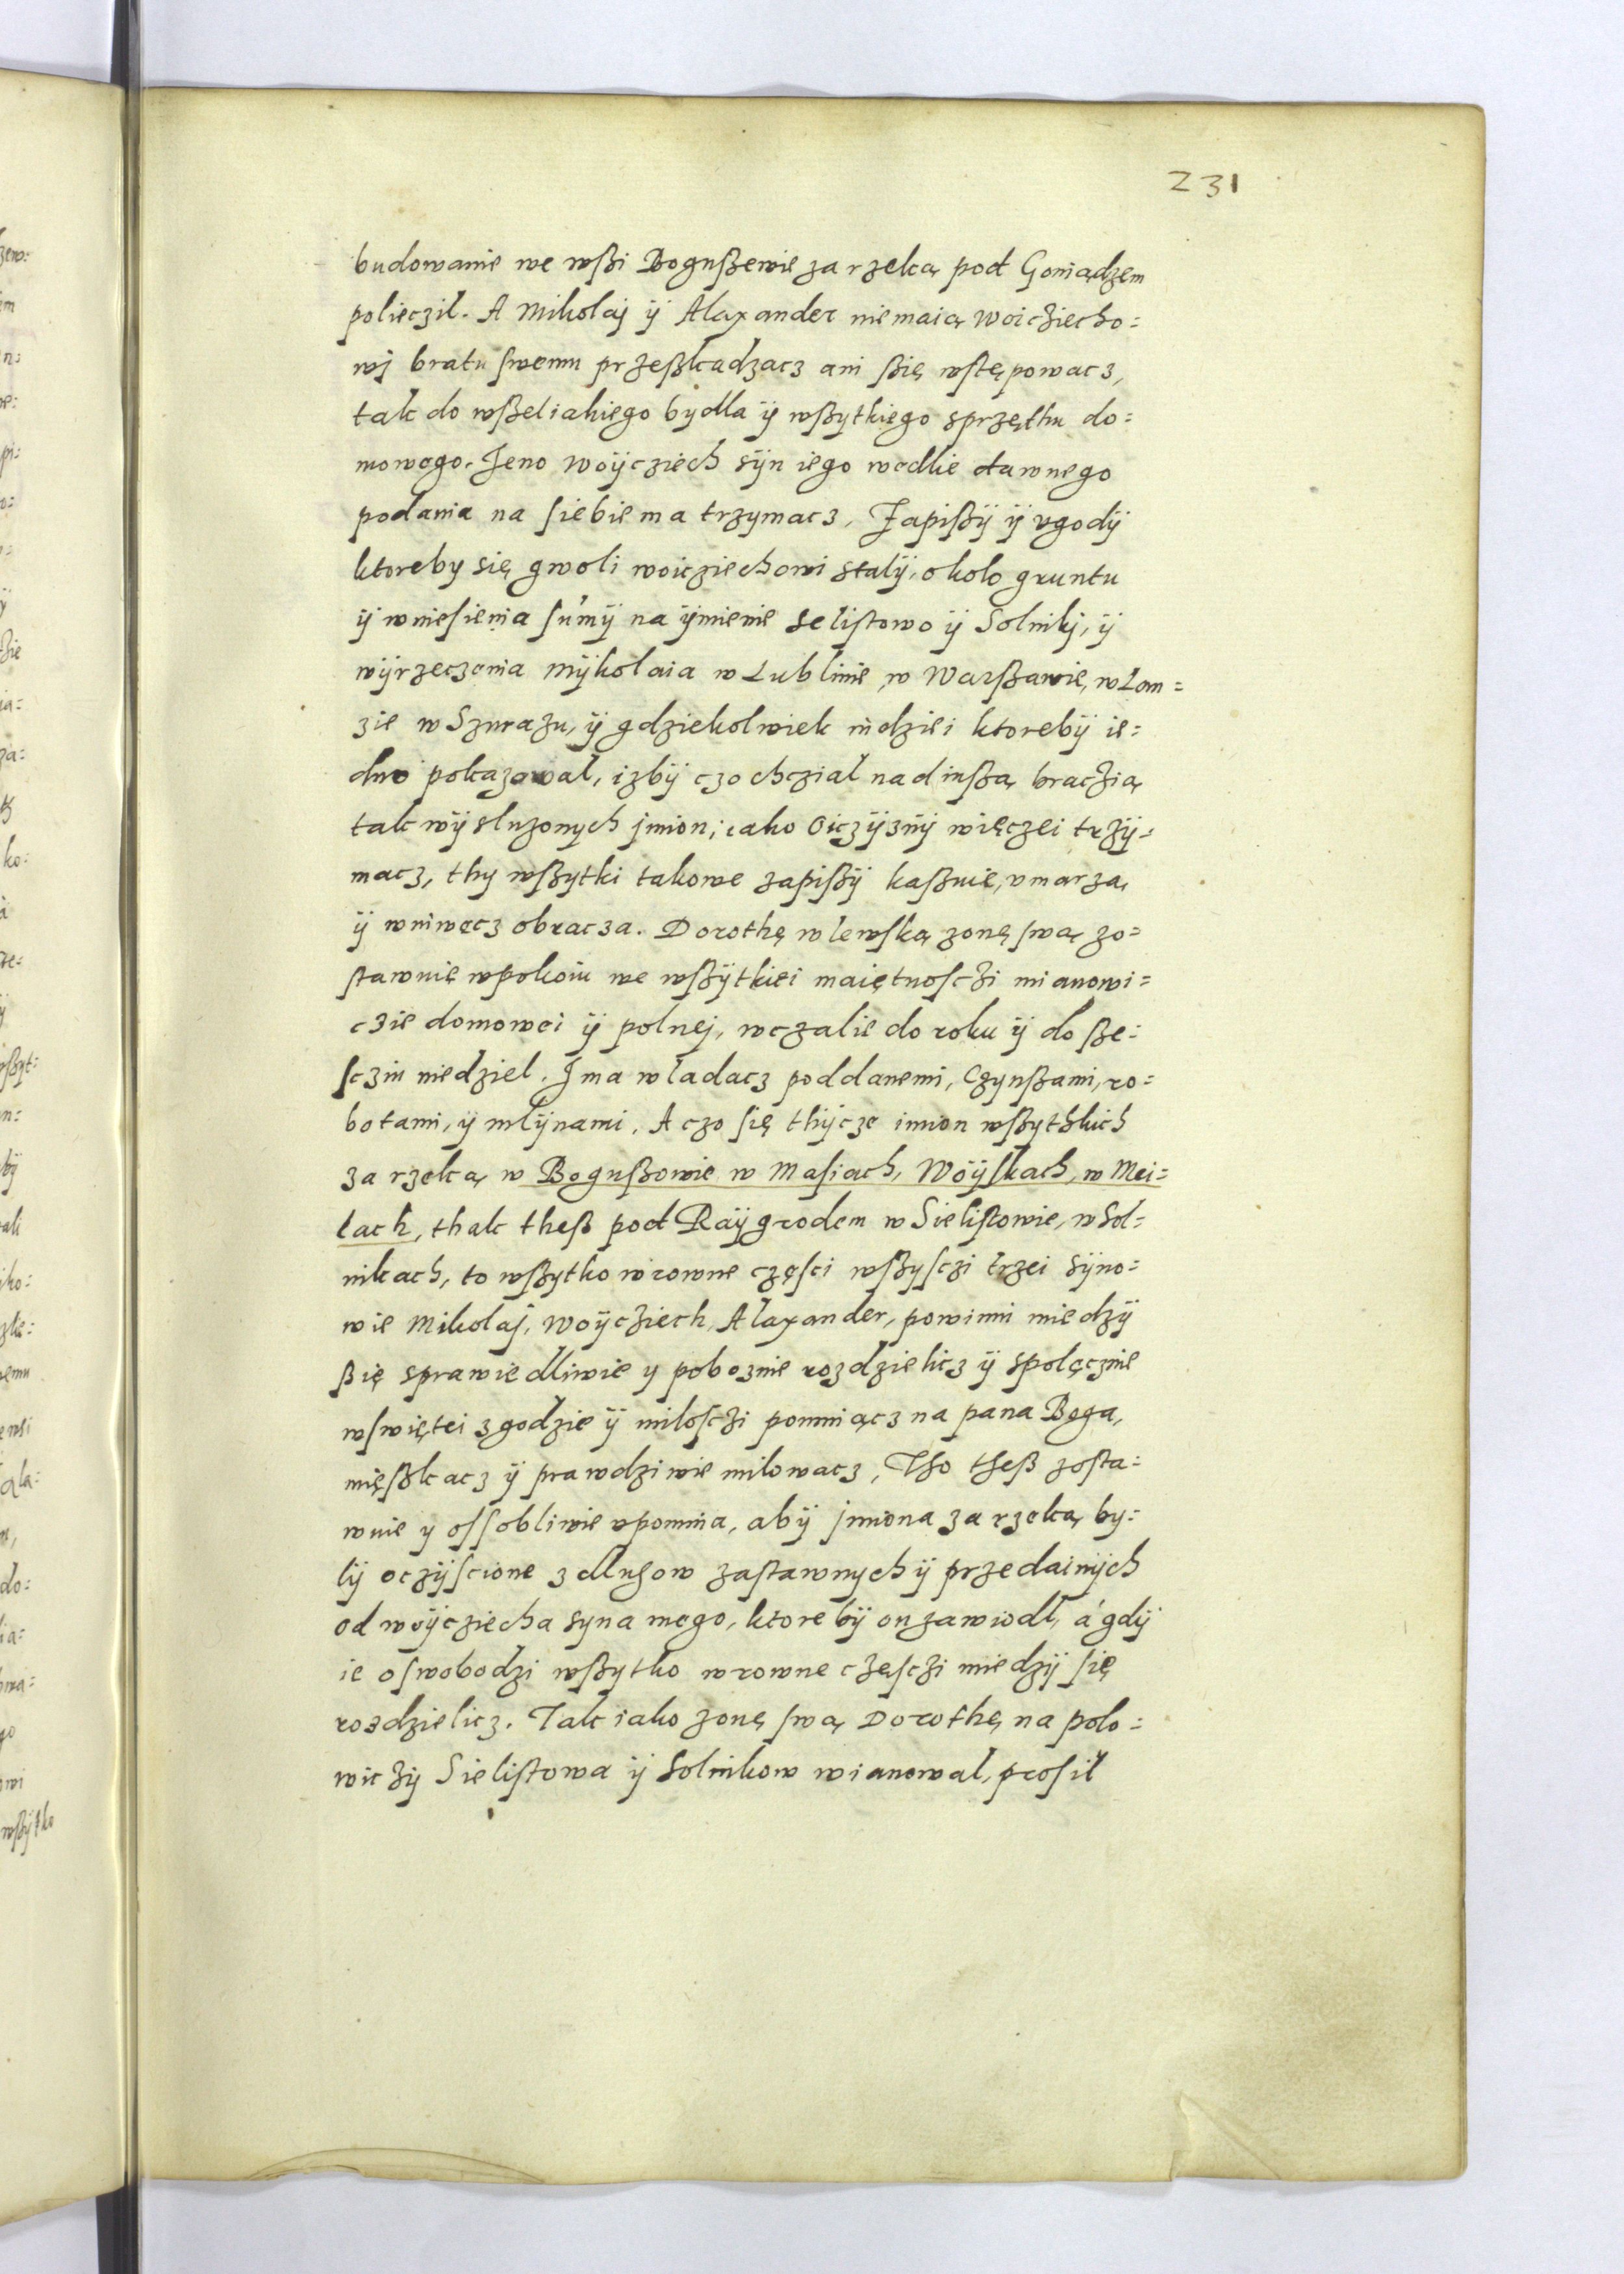 231
budowanie we wßi Bogußewie za rzeką pod Goniądzem
policzil. A Mikolaj ÿ Alaxander niemaią Woicziecho=
wj bratu swemu przeßkadzacz ani ßię wstępowacz,
tak do wßeliakiego bydla ÿ wßytkiego sprzęthu do=
mowego. Jeno Woÿcziech sÿn iego wedlie dawnego
podania na siebie ma trzymacz. Zapißÿ ÿ vgodÿ
ktoreby się gwoli woicziechowi stalÿ, okolo gruntu
ÿ wniesienia sumÿ na ÿmienie Selistowo ÿ Solnikj, ÿ
wÿrzeczenia Mÿkolaia w Lublinie, w Warßawie, w Lom=
zie w Szurazu, ÿ gdziekolwiek indziei ktorebÿ ie=
dno pokazowal, izbÿ czo chczial nad inßą braczią
tak wÿsluzonych jmion, iako Oiczÿznÿ więczei trzÿ=
macz, thy wßytki takowe zapißÿ kaßuie, vmarza,
ÿ wniwecz obracza. Dorothę wlewską zonę swą zo=
stawuie wpokoiu we wßÿtkiei maiętnosczi mianowi=
czie domowei ÿ polnej, wczalie do roku ÿ do ße=
sciu niedziel. J ma wladacz poddanemi, Czynßami, ro=
botami, ÿ mlÿnami. A czo się thÿcze imion wßythkich
za rzeką w Bogußowie w Masiach, Woÿskach, w Mei=
lach, thak theß pod Raÿgrodem w Sielistowie, w Sol=
nikach, to wßytko wrowne częsci wßysczi trzei sÿno=
wie Mikolaj, Woÿcziech, Alaxander, powinni miedzÿ
ßię sprawiedliwie y poboznie rozdzielicz ÿ spolęcznie
wswiętei zgodzie ÿ milosczi pomniącz na pana Boga,
mięßkacz ÿ prawdziwie milowacz, Tho theß zosta=
wuie y ossobliwie vpomina, abÿ jmiona za rzeką by=
lÿ oczÿscione z dlugow zastawnych ÿ przedainÿch
od woÿcziecha syna mego, ktore bÿ on zawiodl, á gdÿ
ie oswobodzi wßytko wrowne częsczi miedzÿ się
rozdzielicz. Tak iako zonę swą Dorothę na polo=
wiczÿ Sielistowa ÿ Solnikow wianowal, prosil